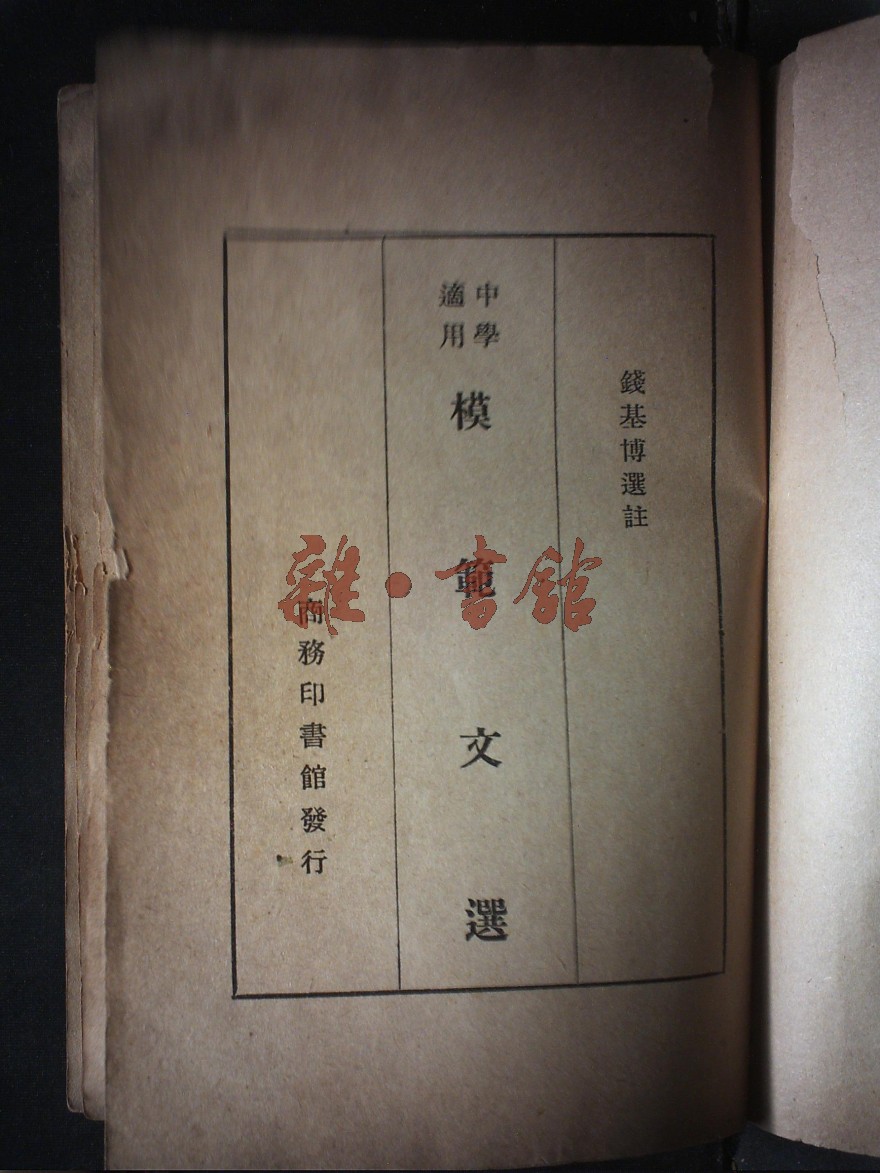 錢基博選註
中學
適用
模範文選
商務印書館發行
雜·書館